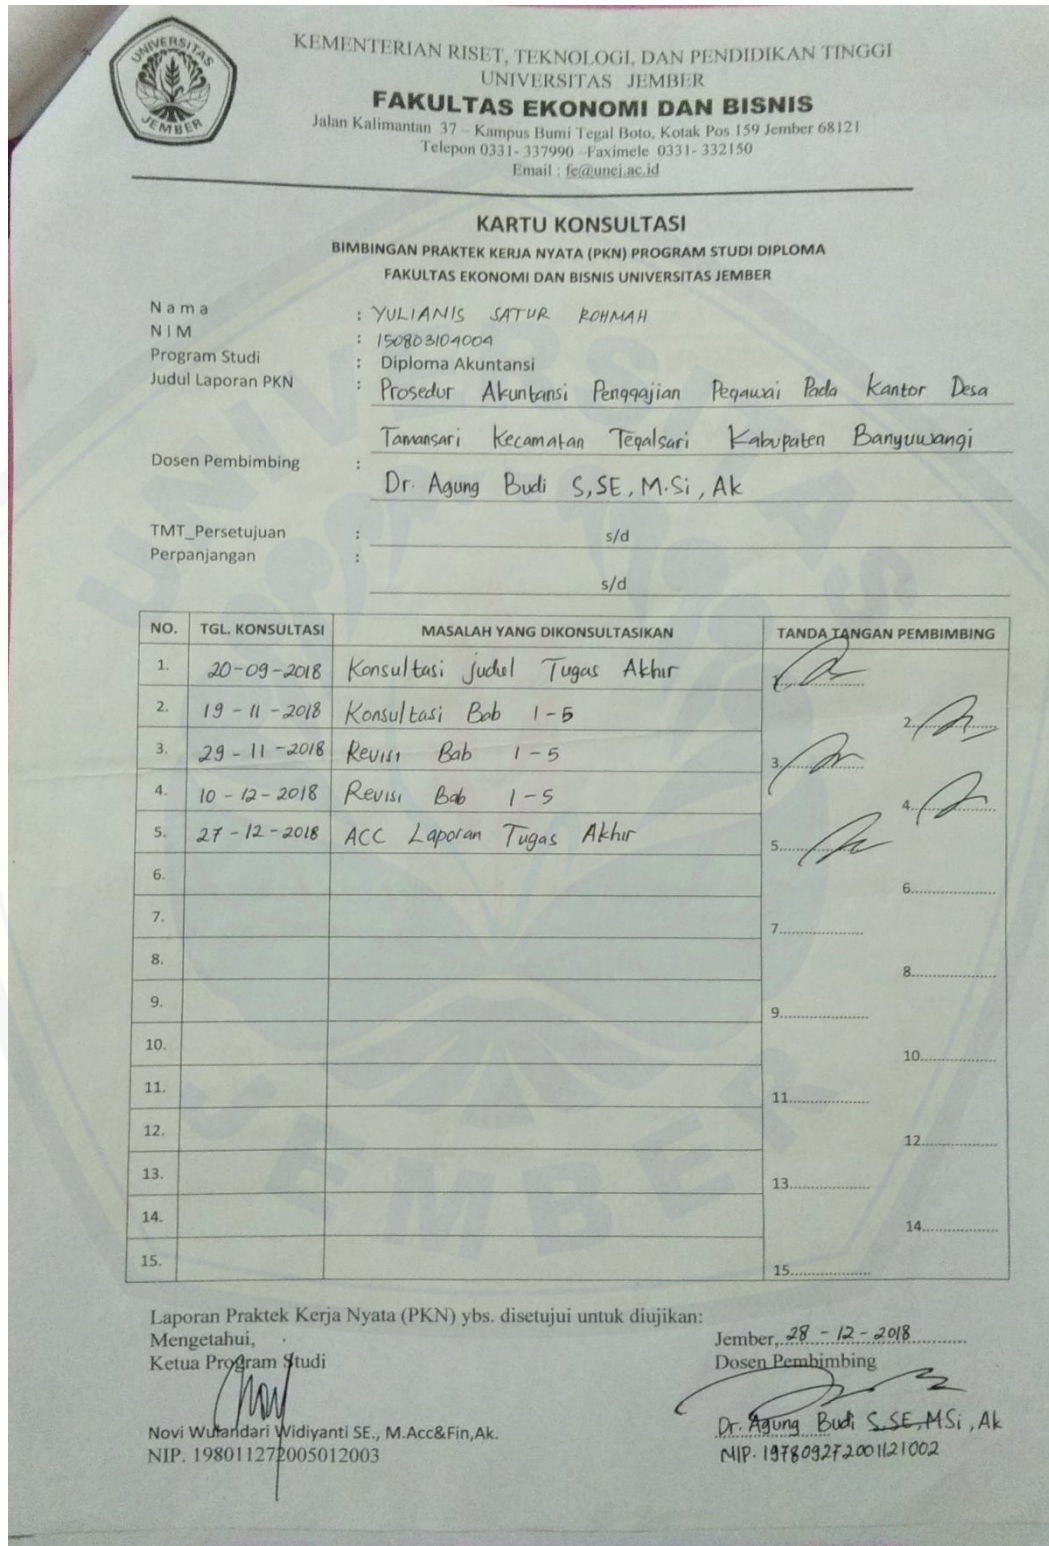 UNIVERSITAS
JEMBER
KEMENTERIAN RISET, TEKNOLOGI, DAN PENDIDIKAN TINGGI
UNIVERSITAS JEMBER
FAKULTAS EKONOMI DAN BISNIS
Jalan Kalimantan 37 – Kampus Bumi Tegal Boto, Kotak Pos 159 Jember 68121
Telepon 0331- 337990 –Faximele 0331- 332150
Email : fe@unej.ac.id
KARTU KONSULTASI
BIMBINGAN PRAKTEK KERJA NYATA (PKN) PROGRAM STUDI DIPLOMA
FAKULTAS EKONOMI DAN BISNIS UNIVERSITAS JEMBER
Nama : YULIANIS SATUR ROHMAH
NIM : 150803104004
Program Studi : Diploma Akuntansi
Judul Laporan PKN : Prosedur Akuntansi Penggajian Pegawai Pada Kantor Desa
Tamansari Kecamatan Tegalsari Kabupaten Banyuwangi
Dosen Pembimbing :
Dr. Agung Budi S, SE, M.Si, Ak
TMT_Persetujuan : s/d
Perpanjangan :
s/d
NO. TGL. KONSULTASI MASALAH YANG DIKONSULTASIKAN TANDA TANGAN PEMBIMBING
1. 20-09-2018 Konsultasi judul Tugas Akhir
2. 19-11-2018 Konsultasi Bab 1-5 2.
3. 29-11-2018 Revisi Bab 1-5 3.
4. 10-12-2018 Revisi Bab 1-5 4.
5. 27-12-2018 ACC Laporan Tugas Akhir 5.
6. 6.
7. 7.
8. 8.
9. 9.
10. 10.
11. 11.
12. 12.
13. 13.
14. 14.
15. 15.
Laporan Praktek Kerja Nyata (PKN) ybs. disetujui untuk diujikan:
Mengetahui, Jember, 28 - 12 - 2018
Ketua Program Studi Dosen Pembimbing
Novi Wulandari Widiyanti SE., M.Acc&Fin,Ak. Dr. Agung Budi S, SE, MSi, Ak
NIP. 198011272005012003 NIP. 197809272001121002
UNIVERSITAS
JEMBER